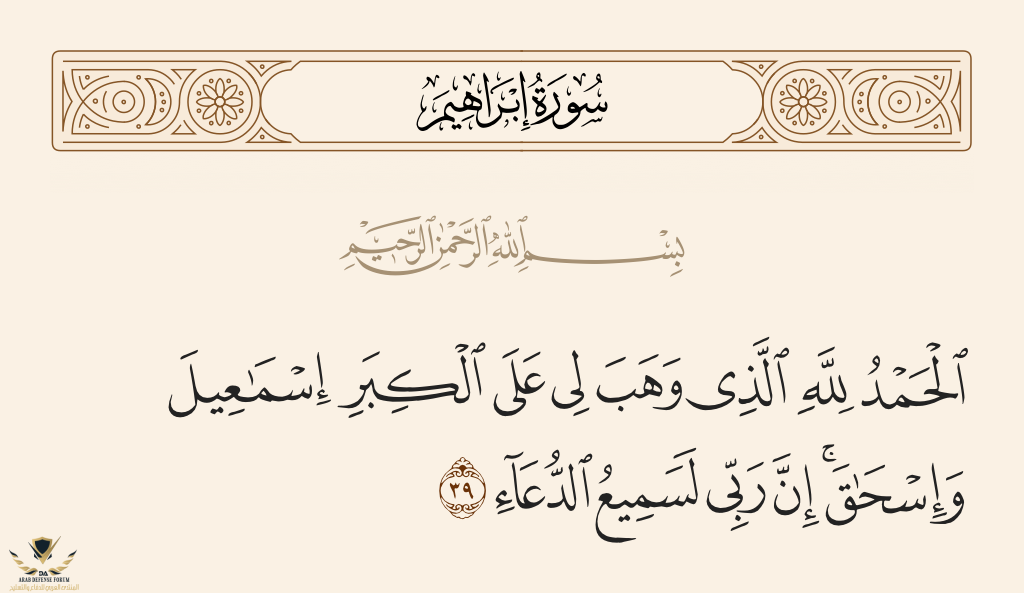 سُورَةُ إِبْرَاهِيمَ
بِسْمِ ٱللَّهِ ٱلرَّحْمَٰنِ ٱلرَّحِيمِ
ٱلْحَمْدُ لِلَّهِ ٱلَّذِى وَهَبَ لِى عَلَى ٱلْكِبَرِ إِسْمَٰعِيلَ
وَإِسْحَٰقَ ۚ إِنَّ رَبِّى لَسَمِيعُ ٱلدُّعَآءِ ٣٩
DA
ARAB DEFENSE FORUM
المنتدى العربي للدفاع والتسليح